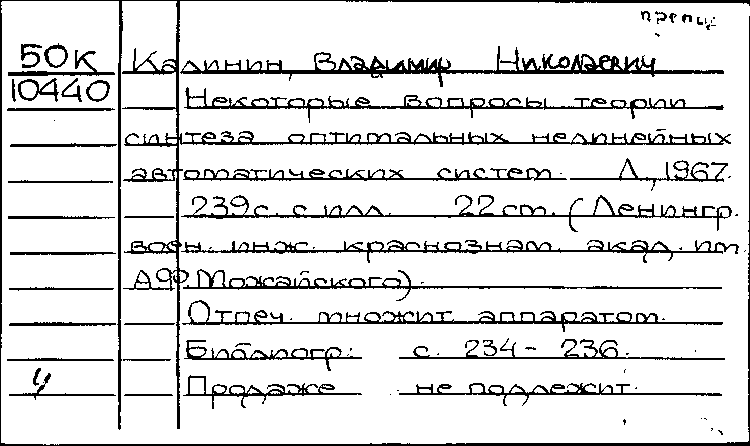 50К Калинин, Владимир Николаевич
10440 Некоторые вопросы теории
синтеза оптимальных нелинейных
автоматических систем. Л., 1967.
239с. с илл. 22 cm. (Ленингр.
воен. инж. краснознам. акад. им.
А.Ф. Можайского).
Отпеч. множит. аппаратом.
Библиогр: с. 234-236.
Продаже не подлежит.